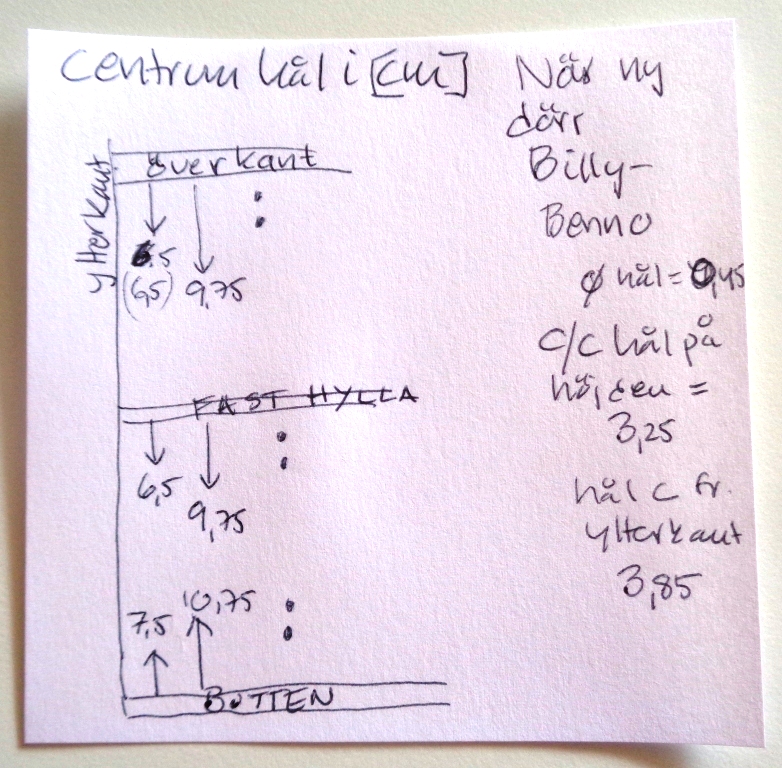 Centrum hål i [cm]
ytterkant
överkant
6,5
(6,5) 9,75
FAST HYLLA
6,5
9,75
7,5 10,75
BOTTEN
När ny
dörr
Billy-
Benno
ø hål = 0,45
c/c hål på
höjden =
3,25
hål c fr.
ytterkant
3,85